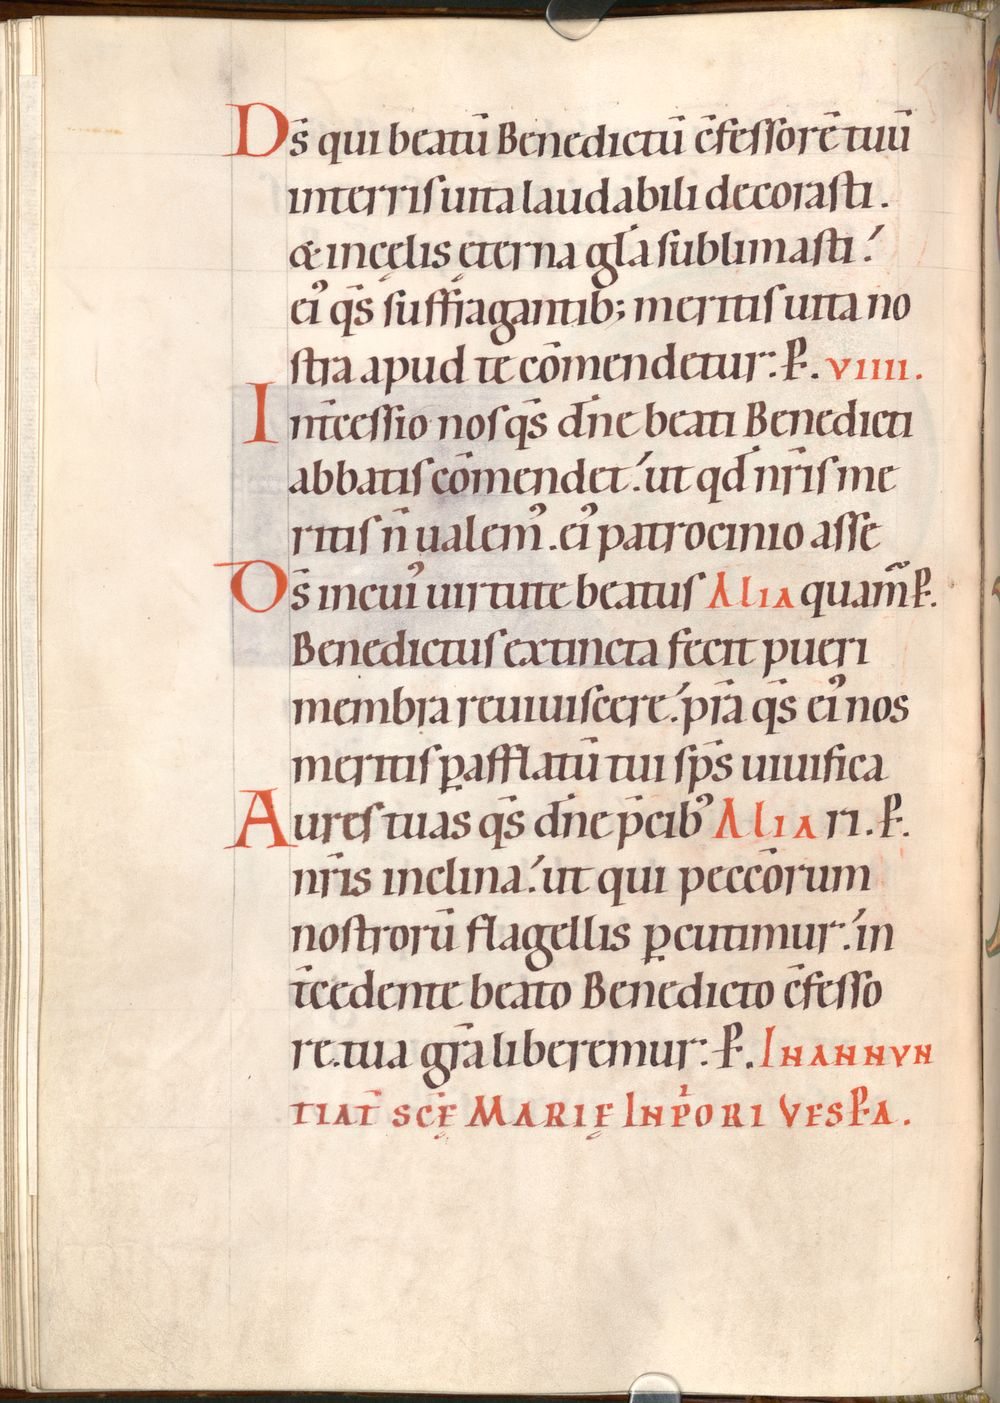 Ds̄ qui beatū Benedictū c̄fessorē tuū
in terris uita laudabili decorasti.
& in cęlis ęterna gl̄a sublimasti.ʹ
ei᾽ qs̄ suffragantib; meritis uita no
stra apud te cōmendetur: P̄. VIIII.
Int̄cessio nos qs̄ dn̄e beati Benedicti
abbatis cōmendet.ʹ ut qd̄ nr̄is me
ritis n̄ ualem᾽. ei᾽ patrocinio asse
Ds̄ in cui᾽ uirtute beatus ALIA quam̄ P̄.
Benedictus extincta fecit pueri
membra reuiuiscere.ʹ pr̄a qs̄ ei᾽ nos
meritis ꝑ afflatū tui sp̄s uiuifica
Aures tuas qs̄ dn̄e p̄cib᾽ ALIA ri. P̄.
nr̄is inclina.ʹ ut qui peccōrum
nostrorū flagellis ꝑcutimur.ʹ in
t̄cedente beato Benedicto c̄fesso
re. tua gr̄a liberemur: P̄. IN ANNUN
TIAT̄ SC̄Ę MARIĘ IN PⁱORI VESP̄A.